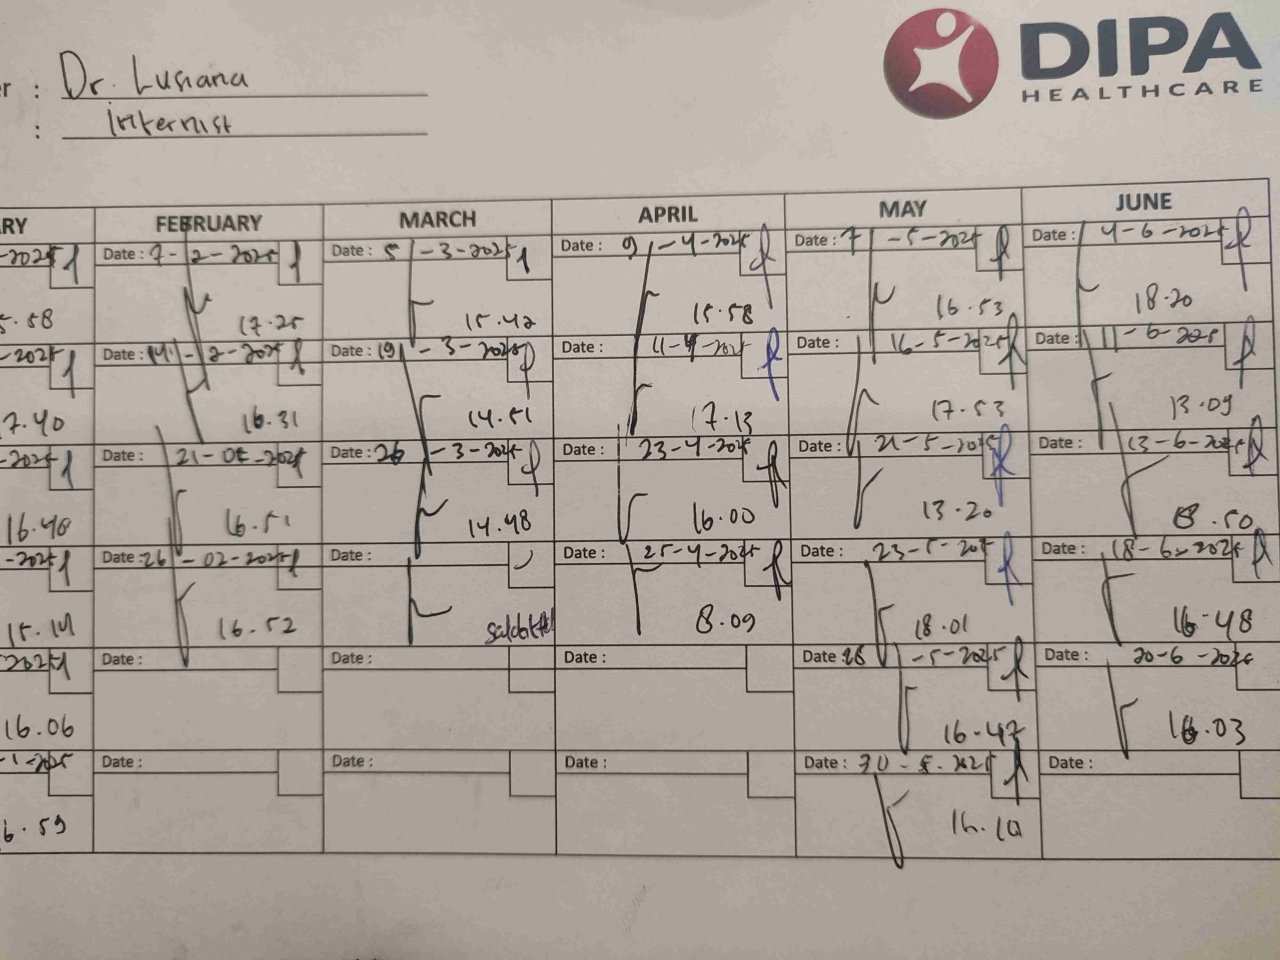 DIPA
HEALTHCARE
r : Dr. Lusiana
: Internist
RY FEBRUARY MARCH APRIL MAY JUNE
-2025 Date : 7-2-2025 Date : 5-3-2025 Date : 9-4-2025 Date : 7-5-2025 Date : 4-6-2025
5.58 17.25 15.42 15.58 16.53 18.20
-2025 Date : 14-2-2025 Date : 19-3-2025 Date : 11-4-2025 Date : 16-5-2025 Date : 11-6-2025
17.40 16.31 14.51 17.13 17.53 13.09
-2025 Date : 21-02-2025 Date : 26-3-2025 Date : 23-4-2025 Date : 21-5-2025 Date : 13-6-2025
16.48 16.51 14.48 16.00 13.20 8.50
-2025 Date : 26-02-2025 Date : Date : 25-4-2025 Date : 23-5-2025 Date : 18-6-2025
15.14 16.52 8.09 18.01 16.48
2025 Date : Date : Date : Date : 28-5-2025 Date : 20-6-2025
16.06 16.47 16.03
-1-2025 Date : Date : Date : Date : 30-5-2025 Date :
6.59 16.10